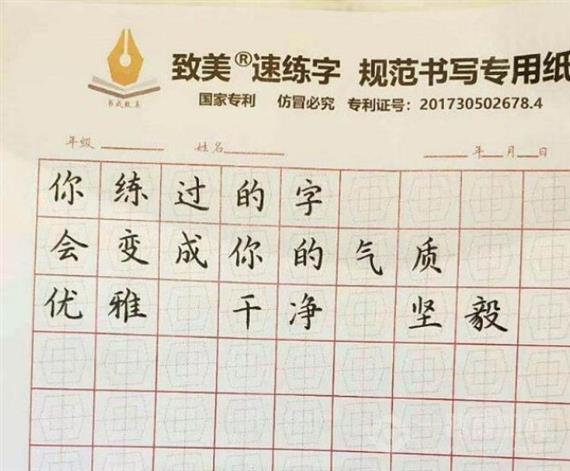 致美®速练字 规范书写专用纸
国家专利 仿冒必究 专利证号：201730502678.4
年级 姓名 年 月 日
你练过的字
会变成你的气质
优雅 干净 坚毅